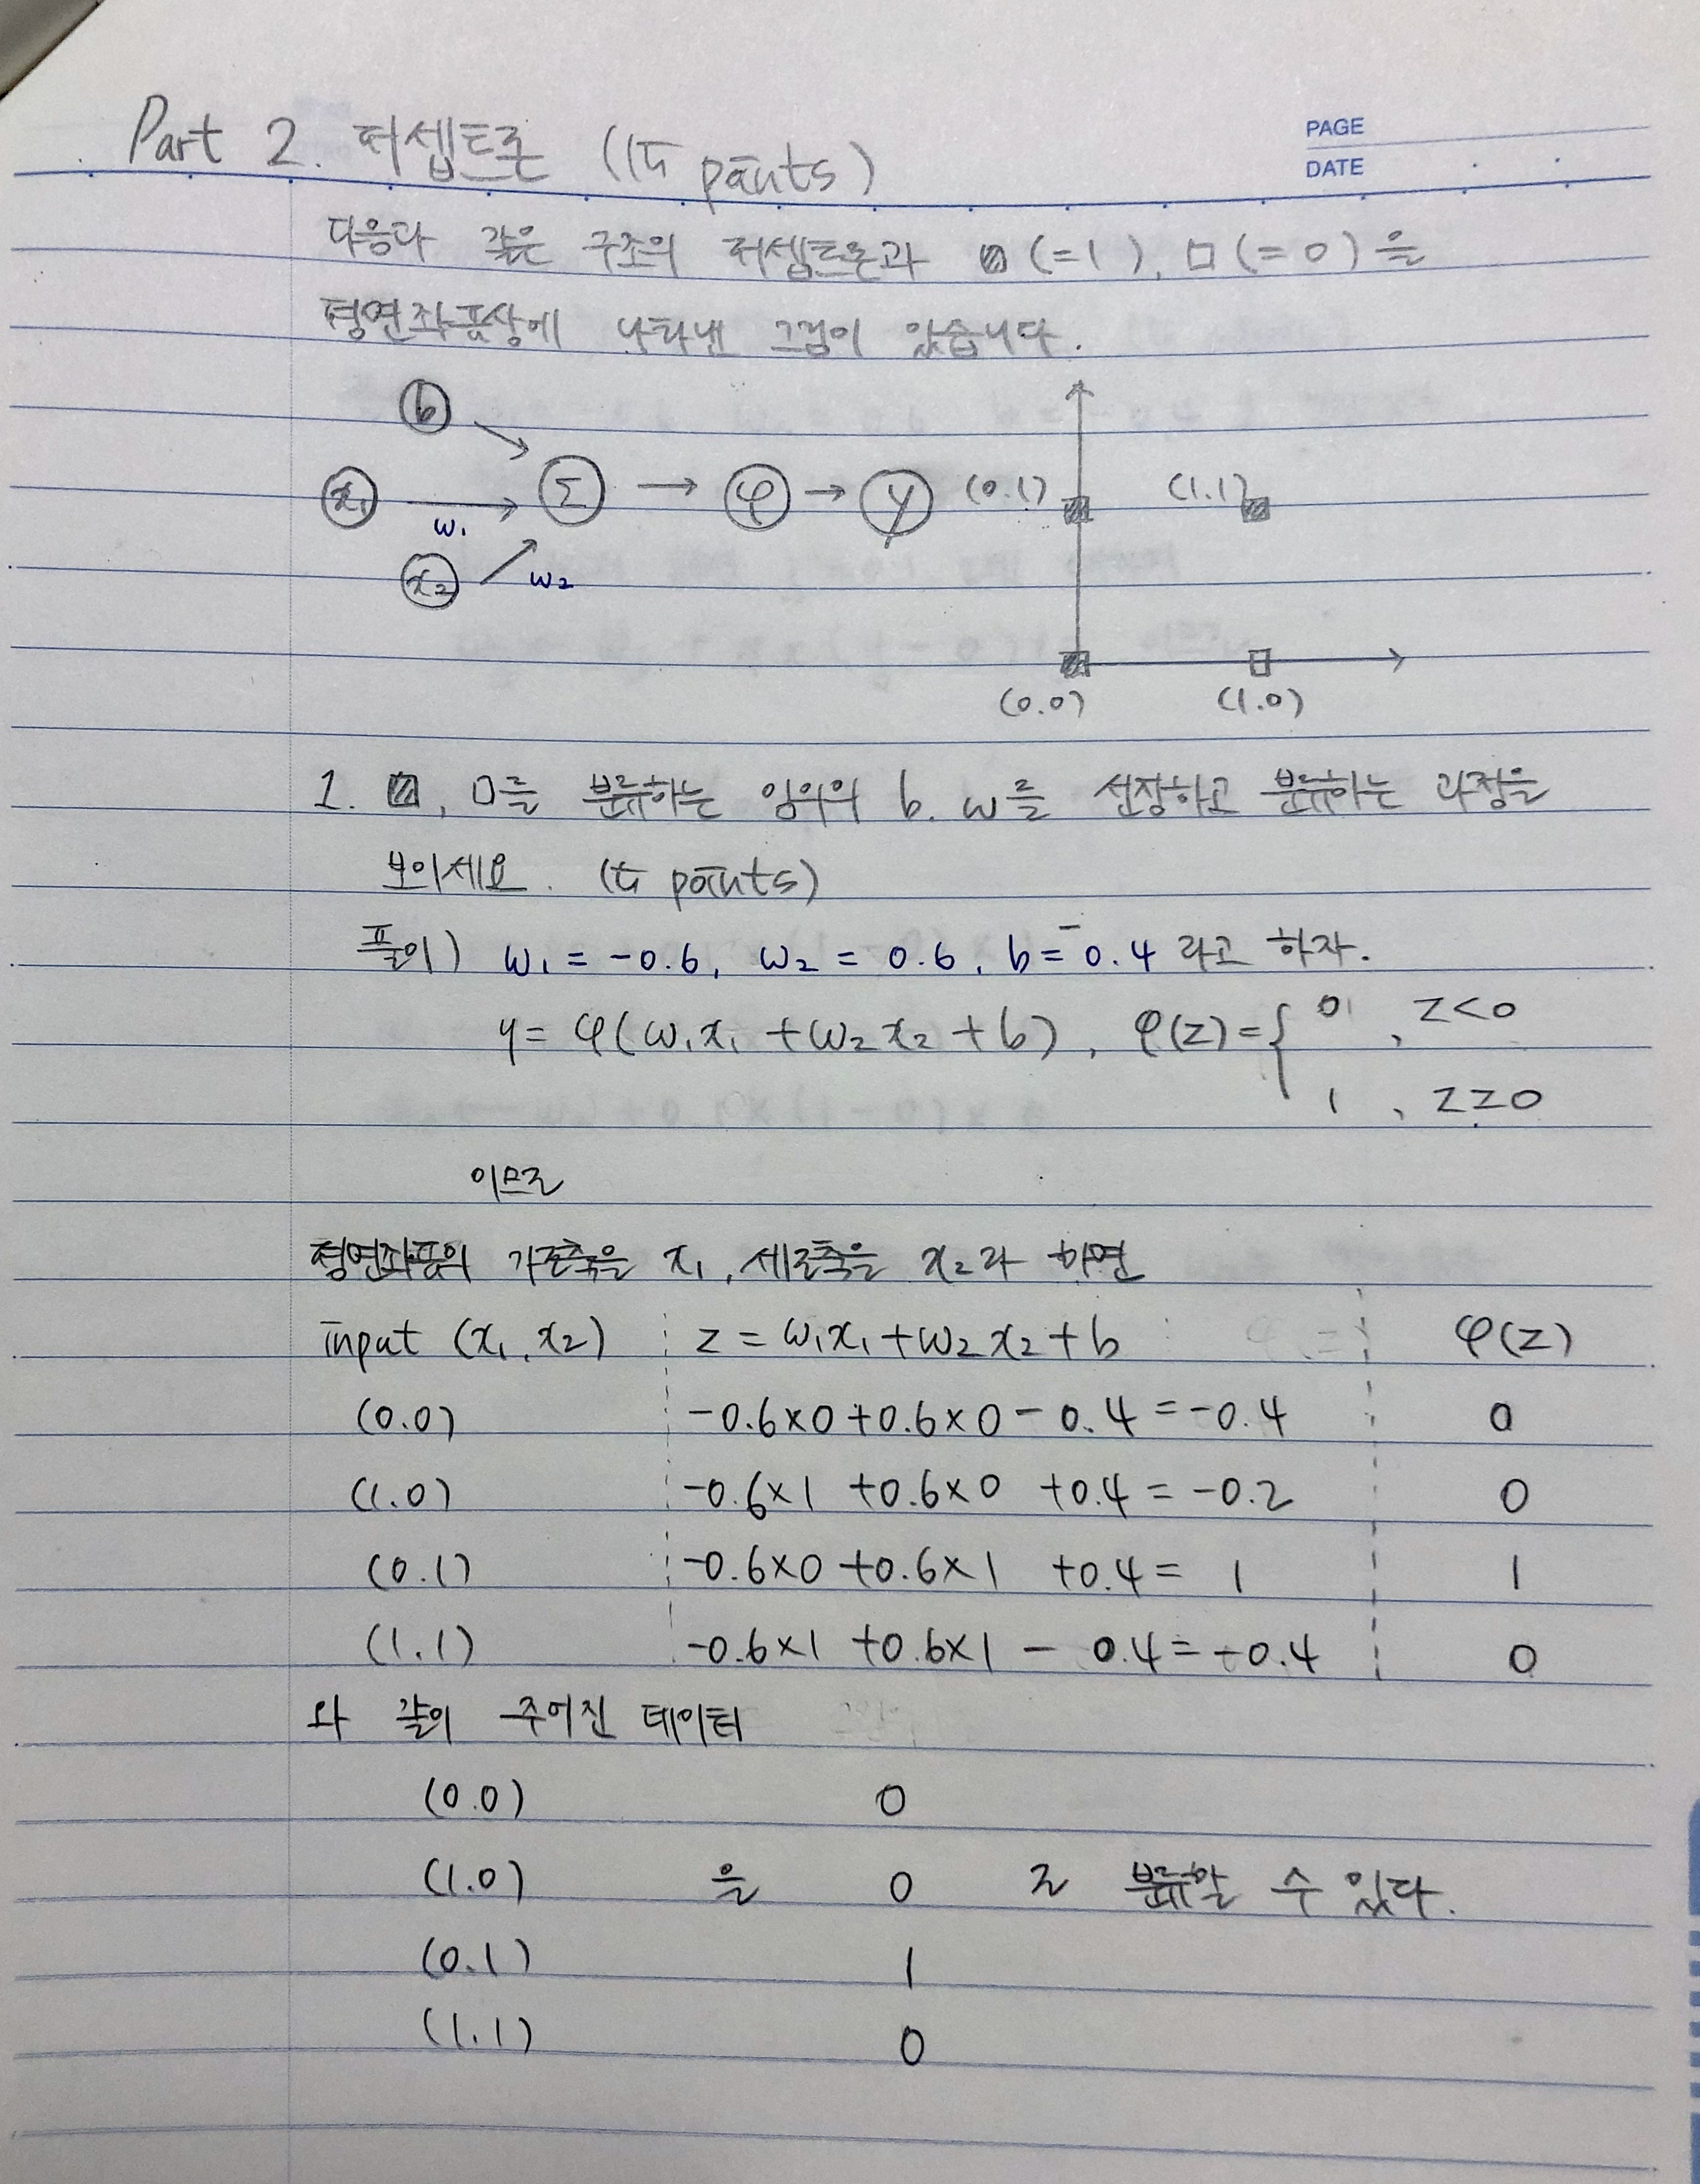 PAGE
DATE
Part 2. 퍼셉트론 (15 points)
다음과 같은 구조의 퍼셉트론과 ▨(=1), □(=0)을
평면좌표상에 나타낸 그림이 있습니다.
b
x₁ w₁ Σ → φ → y
x₂ w₂
(0.1) (1.1)
(0.0) (1.0)
1. ▨, □를 분류하는 임의의 b. w를 선정하고 분류하는 과정을
보이세요. (5 points)
풀이) w₁ = -0.6, w₂ = 0.6, b = -0.4 라고 하자.
y = φ(w₁x₁ + w₂x₂ + b), φ(z) = { 0, z<0
1, z≥0
이므로
평면좌표의 가로축을 x₁, 세로축을 x₂라 하면
input (x₁, x₂) z = w₁x₁+w₂x₂+b φ(z)
(0.0) -0.6×0+0.6×0-0.4=-0.4 0
(1.0) -0.6×1+0.6×0+0.4=-0.2 0
(0.1) -0.6×0+0.6×1+0.4=1 1
(1.1) -0.6×1+0.6×1-0.4=-0.4 0
와 같이 주어진 데이터
(0.0) 0
(1.0) 을 0 로 분류할 수 있다.
(0.1) 1
(1.1) 0